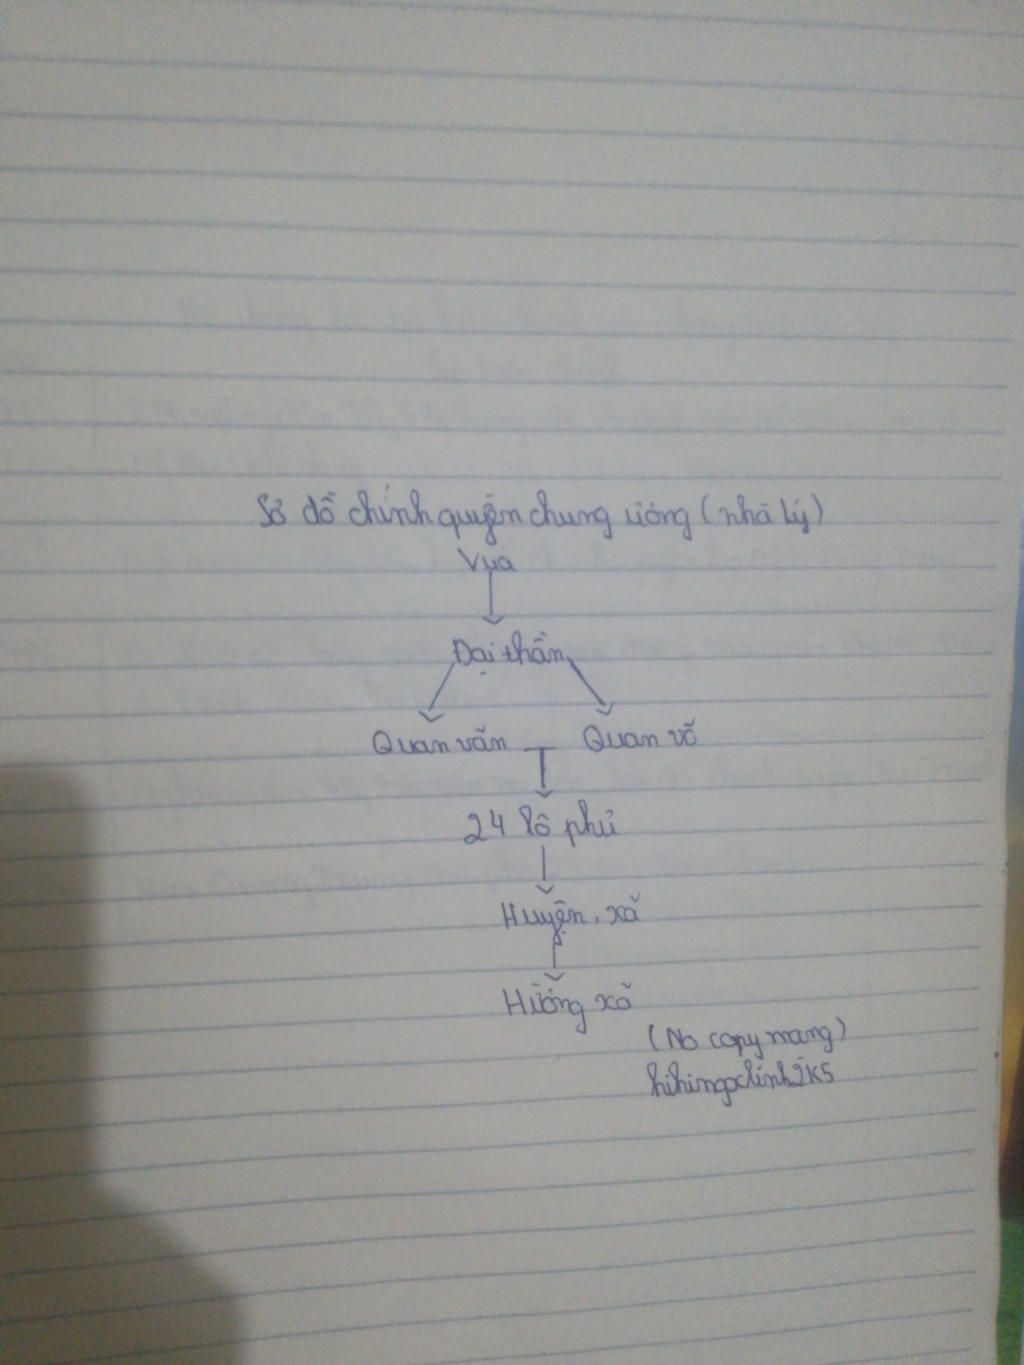 Sơ đồ chính quyền chung ương (nhà Lý)
Vua
Đại thần
Quan văn Quan võ
24 lộ phủ
Huyện, xã
Hương xã
(No copy mang)
hihingoclinh2K5